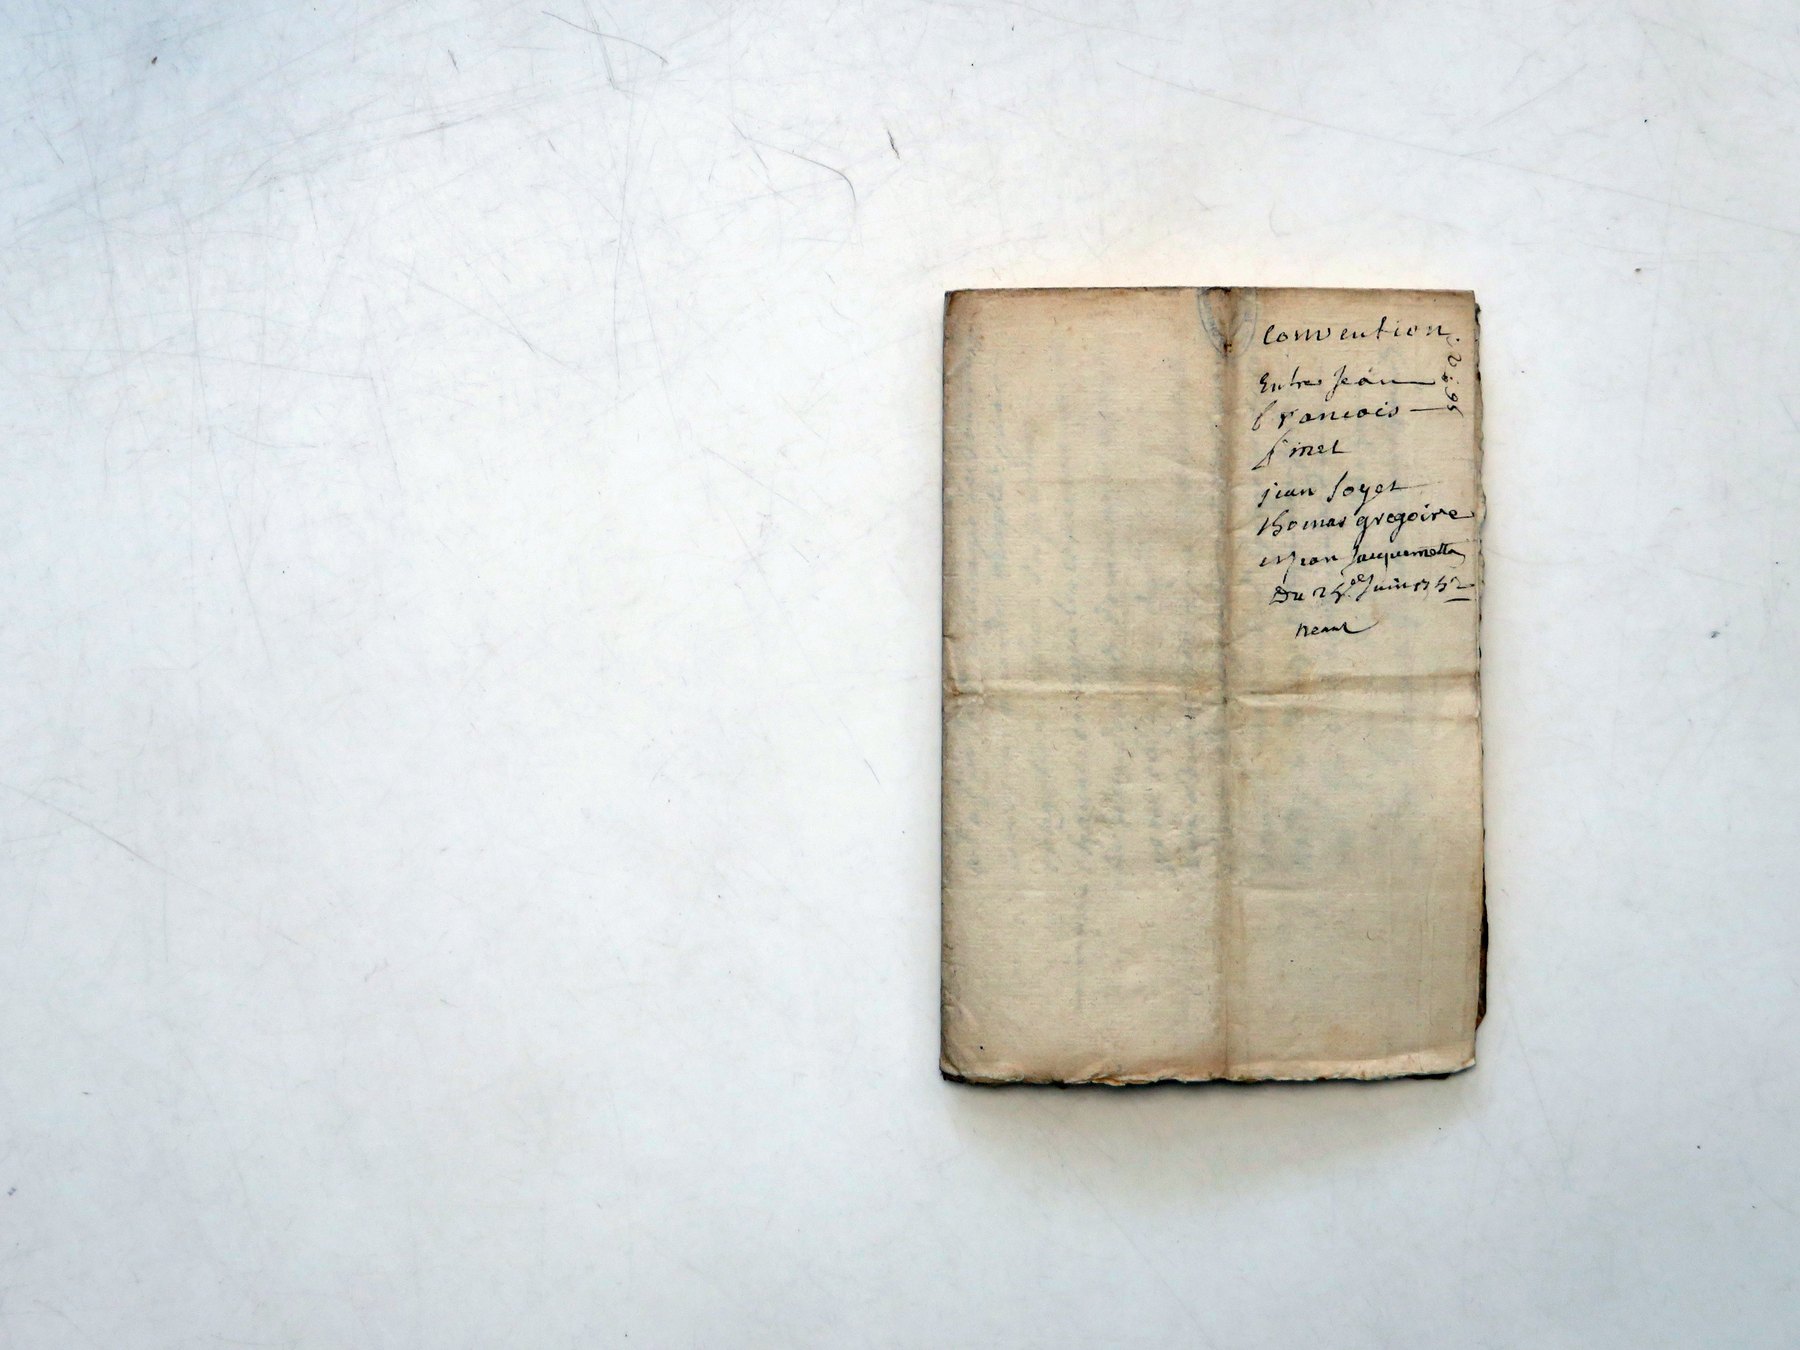 Convention
Entre Jean
francois
finet
jean soyet
thomas gregoire
et jean Jacquemetta
Du 25e Juin 1752
neant